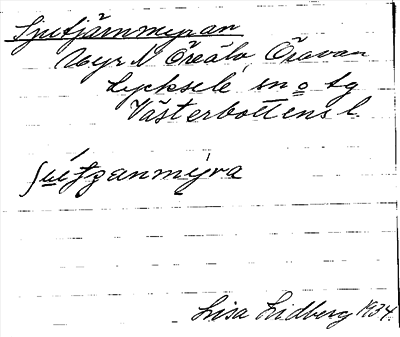 Sjutjärnmyran
Myr N Öreälv, Öravan
Lycksele sn o tg
Västerbottens l.
Lisa Lidberg 1934.